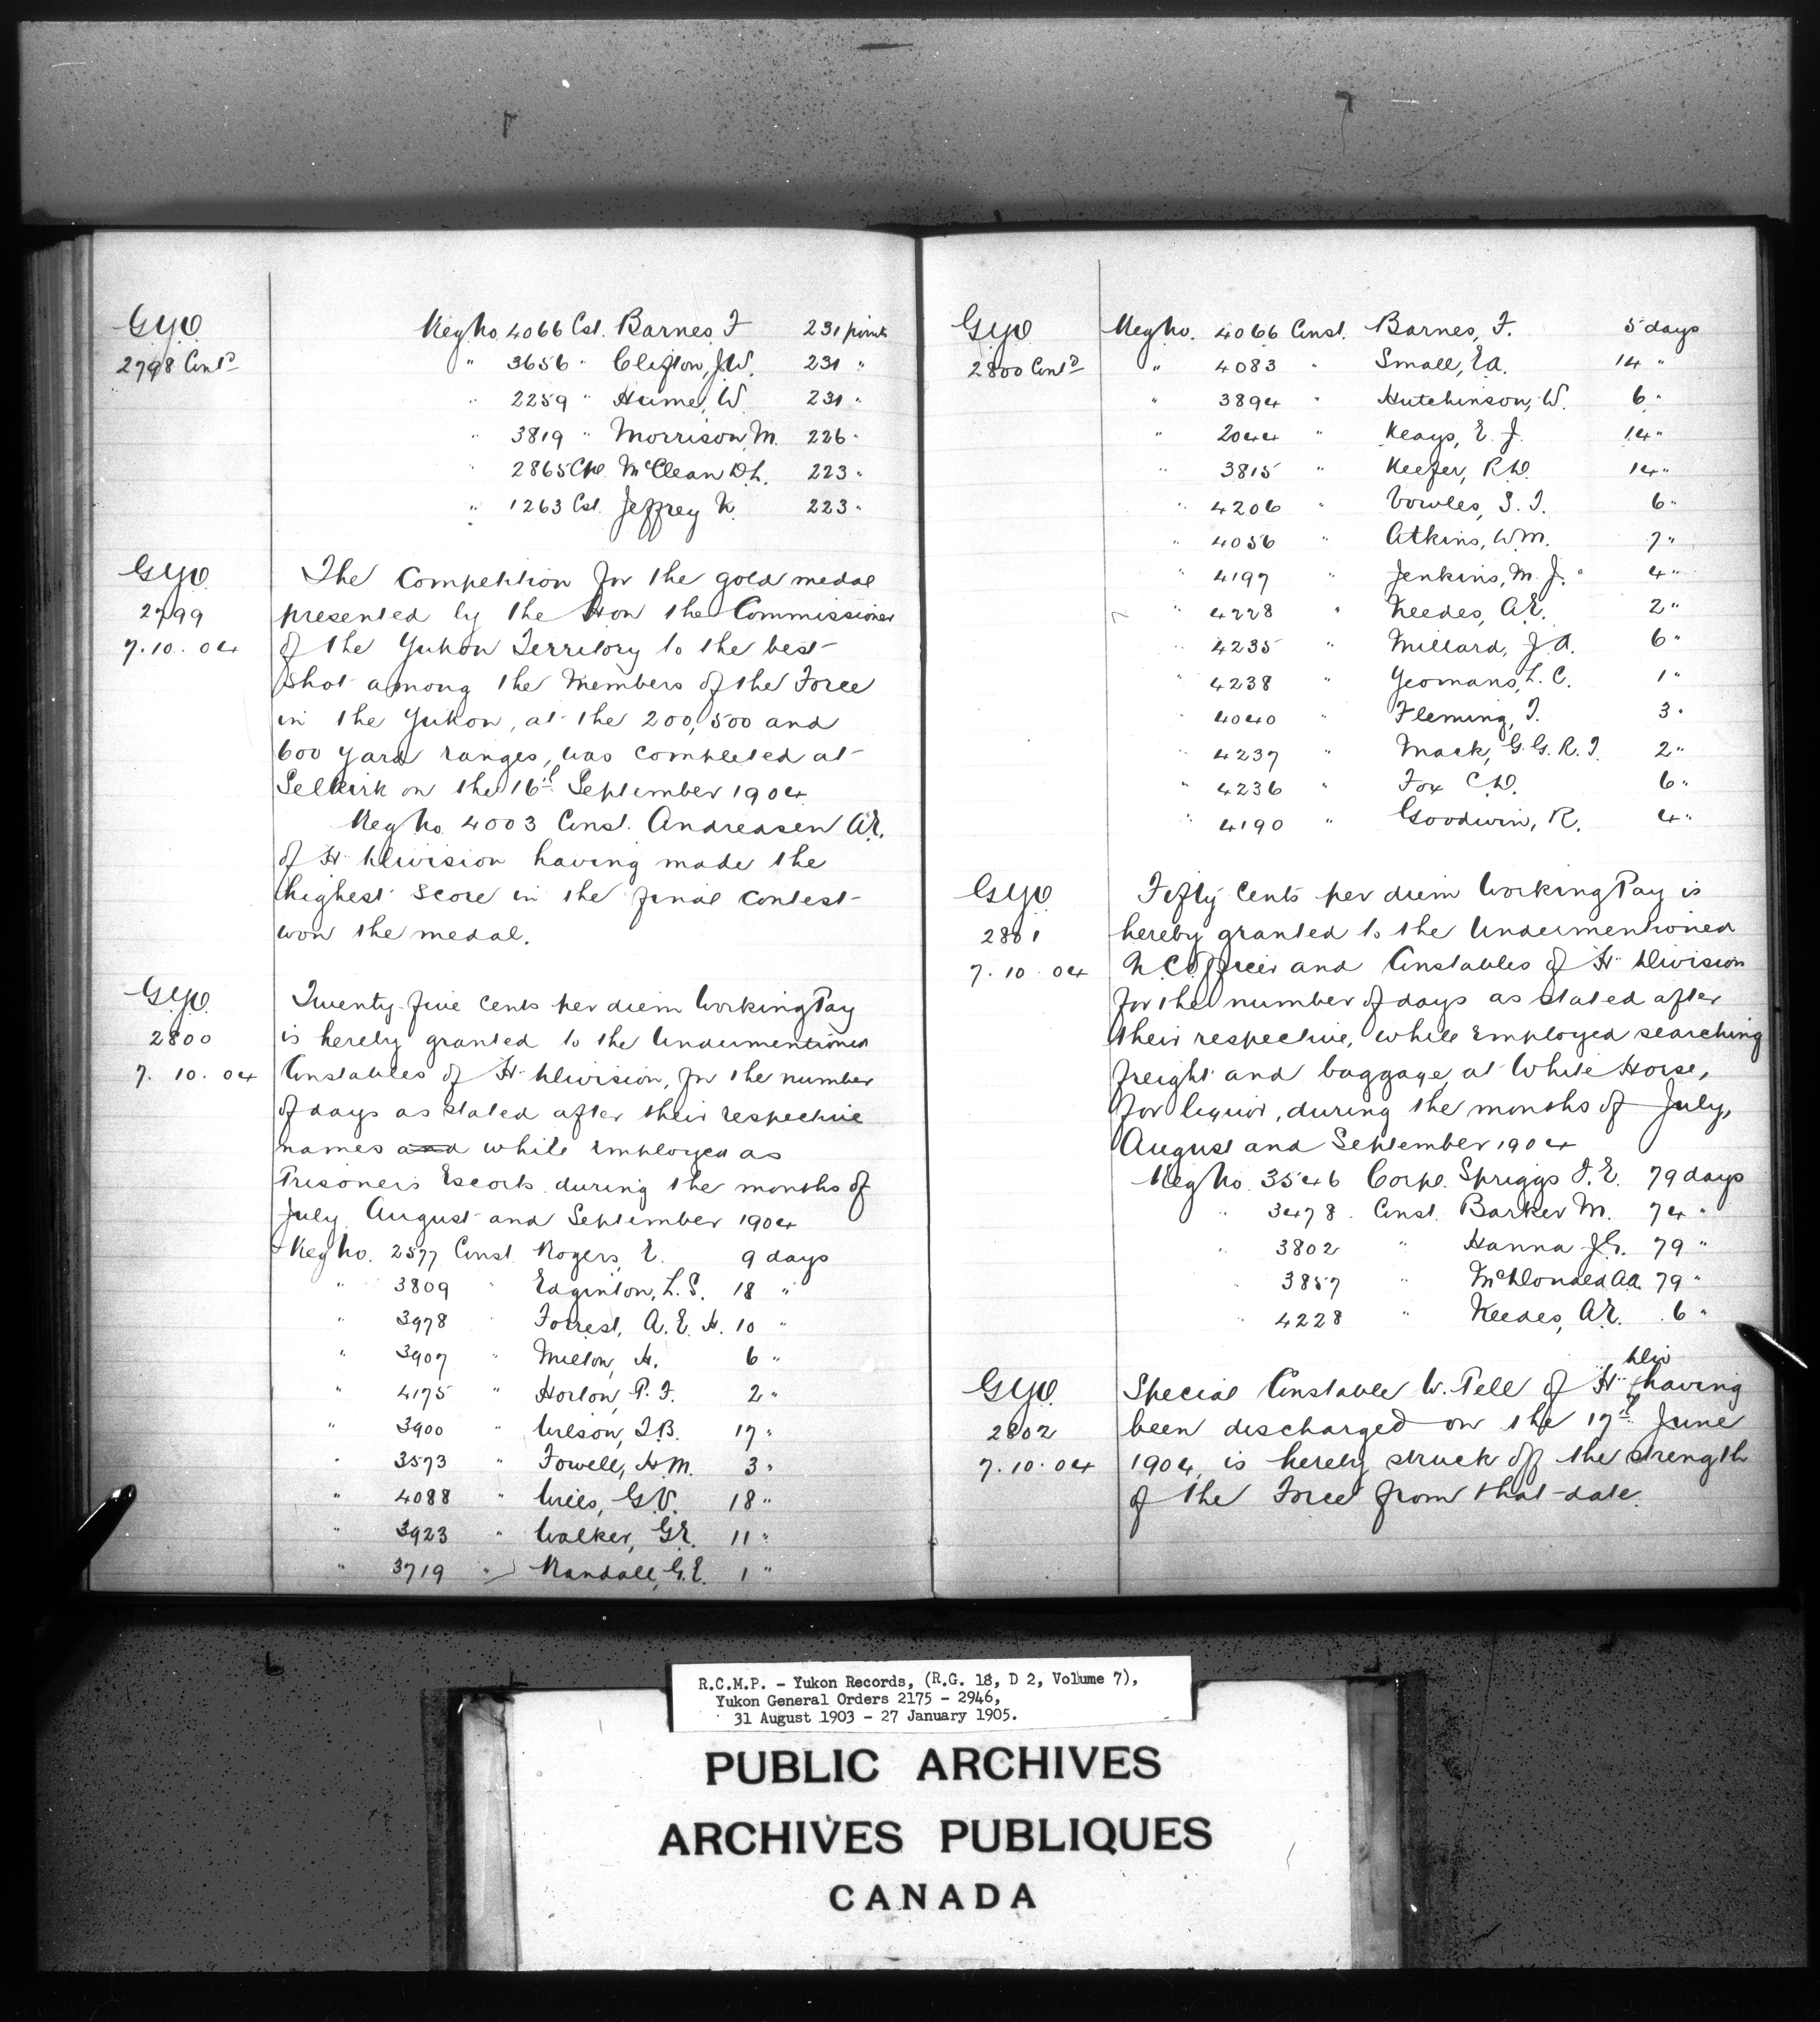 G.Y.O.
2798 Contd
Reg No. 4066 Cst. Barnes, F 231 points
" 3656 " Clifton, J.W. 231 "
" 2259 " Hume, W. 231 "
" 3819 " Morrison M. 226 "
" 2865 Cpl McClean D.L. 223 "
" 1263 Cst. Jeffrey N. 223 "
G.Y.O.
2799
7.10.04
The Competition for the gold medal
presented by the Hon the Commissioner
of the Yukon Territory to the best
shot among the Members of the Force
in the Yukon, at the 200, 500 and
600 yard ranges, was completed at
Selkirk on the 16th September 1904
Reg No. 4003 Const. Andreasen A.E.
of "H" Division having made the
highest score in the final contest
won the medal.
G.Y.O.
2800
7.10.04
Twenty-five cents per diem Working Pay
is hereby granted to the Undermentioned
Constables of "H" Division, for the number
of days as stated after their respective
names and while employed as
Prisoners Escorts during the months of
July August and September 1904
Reg No. 2577 Const Rogers, E. 9 days
" 3809 " Edginton, L.S. 18 "
" 3978 " Forrest, A.E.H. 10 "
" 3907 " Milton, H. 6 "
" 4175 " Horton, P.F. 2 "
" 3900 " Wilson, T.B. 17 "
" 3573 " Fowell, H.M. 3 "
" 4088 " G.V. 18 "
" 3923 " Walker, G.E. 11 "
" 3719 " Randall, G.E. 1 "
G.Y.O.
2800 Contd
Reg No. 4066 Const. Barnes, F. 5 days
" 4083 " Small, E.A. 14 "
" 3894 " Hutchinson, W. 6 "
" 2044 " Keays, E.J. 14 "
" 3815 " Keefer, R.W. 14 "
" 4206 " Vowles, S.T. 6 "
" 4056 " Atkins, W.M. 7 "
" 4197 " Jenkins, M.J. 4 "
" 4228 " Needes, A.E. 2 "
" 4235 " Millard, J.A. 6 "
" 4238 " Yeomans, L.C. 1 "
" 4040 " Fleming, T. 3 "
" 4237 " Mack, G.G.R.T. 2 "
" 4236 " Fox C.W. 6 "
" 4190 " Goodwin, R. 4 "
G.Y.O.
2801
7.10.04
Fifty Cents per diem Working Pay is
hereby granted to the Undermentioned
N.C. Officer and Constables of "H" Division
for the number of days as stated after
their respective, while employed searching
freight and baggage at White Horse,
for liquor, during the months of July,
August and September 1904
Reg No. 3546 Corpl. Spriggs J.E. 79 days
" 3478 Const. Barker M. 74 "
" 3802 " Hanna J.G. 79 "
" 3857 " McDonald A.A. 79 "
" 4228 " Needes, A.E. 6 "
G.Y.O.
2802
7.10.04
Special Constable W. Tell of "H" Div having
been discharged on the 17th June
1904, is hereby struck off the strength
of the Force from that date.
R.C.M.P. - Yukon Records, (R.G. 18, D 2, Volume 7),
Yukon General Orders 2175 - 2946,
31 August 1903 - 27 January 1905.
PUBLIC ARCHIVES
ARCHIVES PUBLIQUES
CANADA